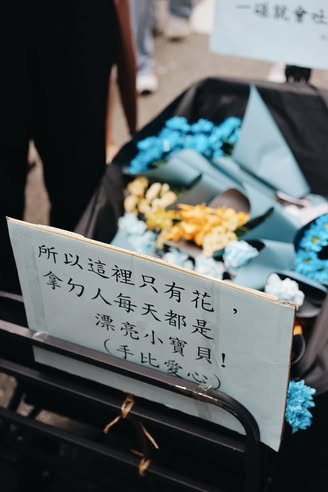 一碰就會吐
所以這裡只有花，
拿勿人每天都是
漂亮小寶貝！
（手比愛心）